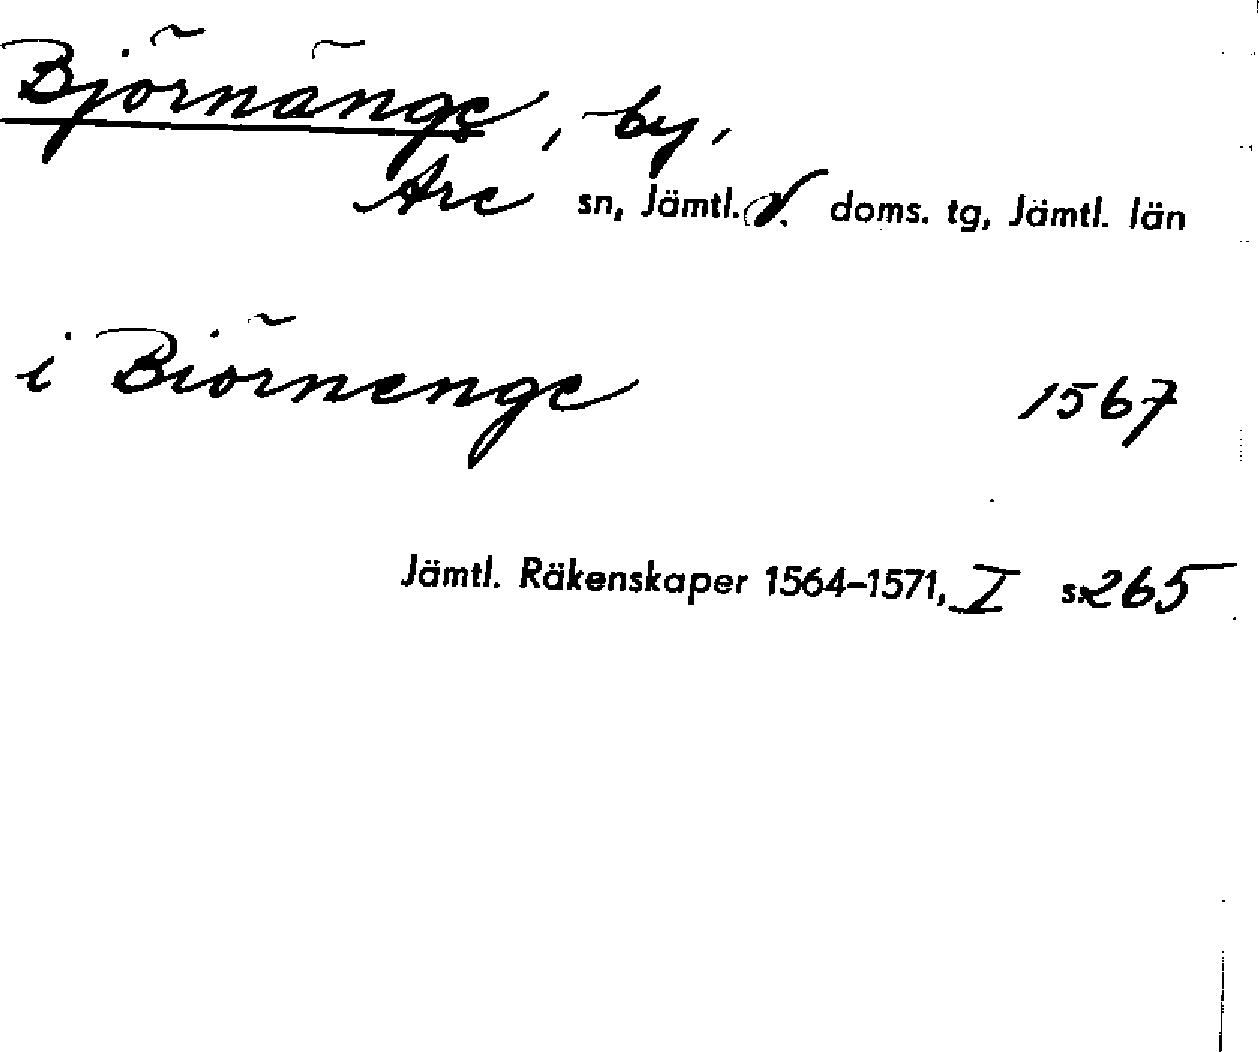 Björnänge, by,
Åre sn, Jämtl. V. doms. tg, Jämtl. län
i Biörnenge 1567
Jämtl. Räkenskaper 1564–1571, I s. 265